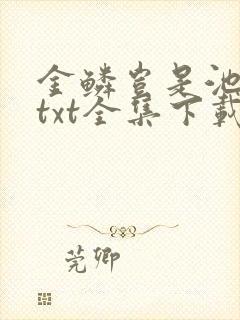 金鳞岂是池
txt全集下载
莞卿